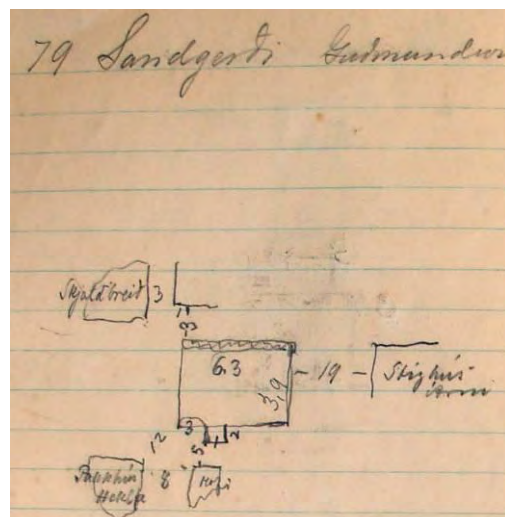 79 Sandgerði Guðmundur
Skjaldbreið 3
3
6.3
3,9
- 19 -
Stighús
Árni
3
1 2
5
12
Pakkhús
Hekla
8